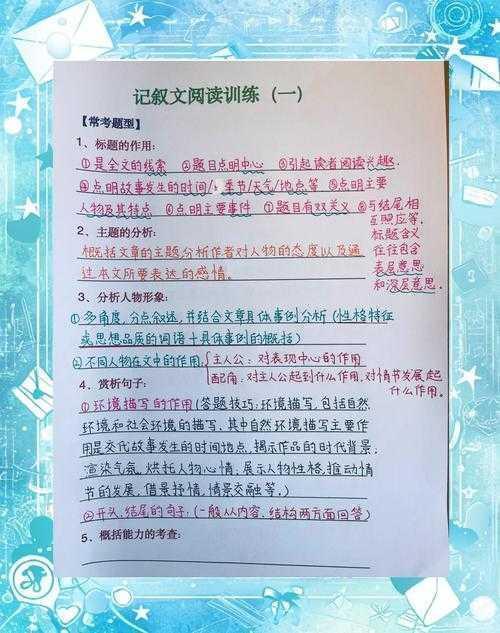 记叙文阅读训练（一）
【常考题型】
1、标题的作用：
①是全文的线索 ②题目点明中心 ③引起读者阅读兴趣.
④点明故事发生的时间/季节/天气/地点等 ⑤点明主要
人物及其特点 ⑥点明主要事件 ⑦题目有双关义 ⑧与结尾相
互照应等.
标题含义
往往包含
表层意思
和深层意思.
2、主题的分析：
概括文章的主题分析作者对人物的态度以及通
过本文所要表达的感情。
3、分析人物形象：
①多角度,分点叙述,并结合文章具体事例分析(性格特征
或思想品质的词语+具体事例的概括)
②不同人物在文中的作用 主人公：对表现中心的作用
配角：对主人公起到什么作用,对情节发展起
什么作用。
4、赏析句子：
①环境描写的作用(答题技巧:环境描写,包括自然
环境和社会环境的描写,其中自然环境描写主要作
用是交代故事发生的时间地点,揭示作品的时代背景,
渲染气氛,烘托人物心情,展示人物性格,推动情
节的发展,借景抒情,情景交融等。)
②开头、结尾的句子:(一般从内容、结构两方面回答)
5、概括能力的考查：